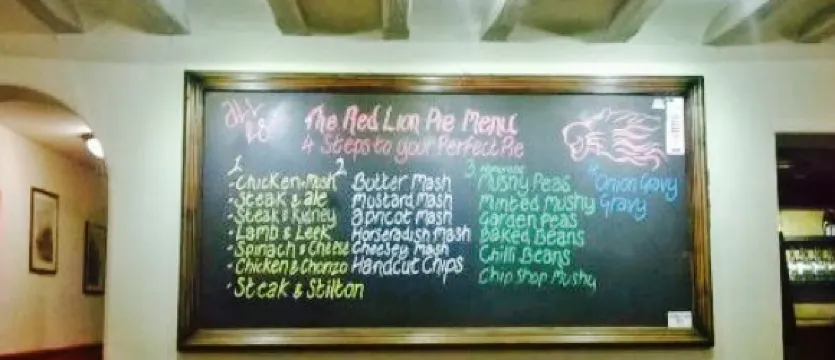 All
£8
The Red Lion Pie Menu
4 Steps to your Perfect Pie
1.
• Chicken & Mush
• Steak & ale
• Steak & Kidney
• Lamb & Leek
• Spinach & Cheese
• Chicken & Chorizo
• Steak & Stilton
2
Butter Mash
Mustard Mash
apricot Mash
Horseradish Mash
Cheesey Mash
Handcut Chips
3.
Mushy Peas
Minted Mushy
Garden Peas
Baked Beans
Chilli Beans
Chip Shop Mushy
Onion Gravy
Gravy